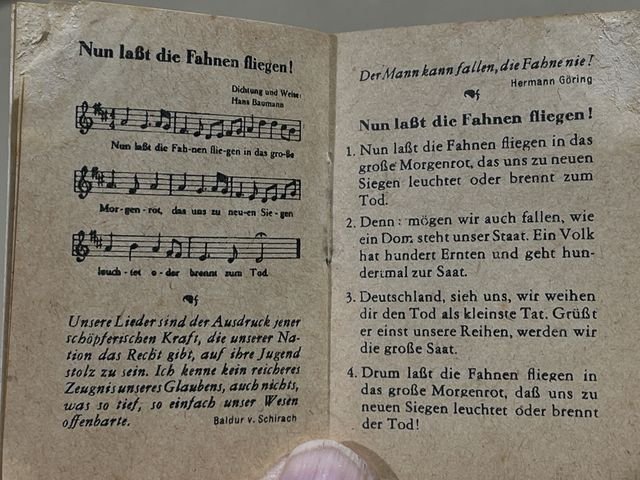 Nun laßt die Fahnen fliegen!
Dichtung und Weise:
Hans Baumann
Nun laßt die Fah-nen flie-gen in das gro-ße
Mor-gen-rot, das uns zu neu-en Sie-gen
leuch-tet o-der brennt zum Tod.
Unsere Lieder sind der Ausdruck jener
schöpferischen Kraft, die unserer Na-
tion das Recht gibt, auf ihre Jugend
stolz zu sein. Ich kenne kein reicheres
Zeugnis unseres Glaubens, auch nichts,
was so tief, so einfach unser Wesen
offenbarte.
Baldur v. Schirach
Der Mann kann fallen, die Fahne nie!
Hermann Göring
Nun laßt die Fahnen fliegen!
1. Nun laßt die Fahnen fliegen in das
große Morgenrot, das uns zu neuen
Siegen leuchtet oder brennt zum
Tod.
2. Denn: mögen wir auch fallen, wie
ein Dom steht unser Staat. Ein Volk
hat hundert Ernten und geht hun-
dertmal zur Saat.
3. Deutschland, sieh uns, wir weihen
dir den Tod als kleinste Tat. Grüßt
er einst unsere Reihen, werden wir
die große Saat.
4. Drum laßt die Fahnen fliegen in
das große Morgenrot, daß uns zu
neuen Siegen leuchtet oder brennt
der Tod!